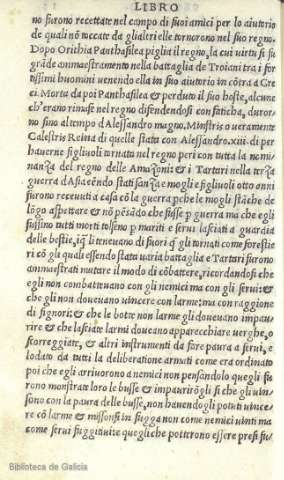 LIBRO
no furono recettate nel campo di suoi amici per lo aiutorio
de quali nõ toccate da glialtri elle tornorono nel suo regno.
Dopo Orithia Panthasilea piglia il regno, la cui virtu si fu
grãde ammaestramento nella battaglia de Troiani tra i for-
tissimi huomini uenendo ella in suo aiutorio in cõtra a Gre
ci. Morta da poi Panthasilea & perduto il suo hoste, alcune
ch'erano rimase nel regno difendendosi con faticha, duror-
no sino al tempo d'Alessandro magno, Minstris o ueramente
Calestris Reina di quelle stata con Alessandro .xiii. di per
hauerne figliuoli tornato nel regno peri con tutta la nomi-
nanza del regno delle Amazoni: & i Tartari nella terza
guerra d'Asia eẽndo stati sanza mogli e figliuoli otto anni
furono receuuti a casa cõ la guerra pche le mogli stãche de
lõgo aspettare & nõ pẽsãdo che fusse p guerra ma che egli
fussino tutti morti tolseno p mariti e serui lasciati a guardia
delle bestie, iq̃li teneuano di fuori q̃gli tornati come forestie
ri cõ gli quali essendo stata uaria battaglia e Tartari furono
ammaestrati mutare il modo di cõbattere, ricordandosi che
egli non combattuano con gli nemici ma con gli serui: &
che gli non doueano uincere con larme: ma con raggione
di signori: & che le botte non larme gli doueano impau-
rire & che lasciate larmi doueano apparecchiare uerghe, o
scorreggiate, & altri instrumenti da fare paura a serui, e
lodato da tutti la deliberatione armati come era ordinato
poi che egli arriuorono a nemici non pensandolo quegli fu
rono monstrate loro le busse & impaurirõgli si che gli uin-
sono con la paura delle busse, non hauendogli potuti uince-
re cõ larme & missonsi in fugga non come nemici uinti ma
come serui fuggitiui: e quegli che potterono essere presi fu-
Biblioteca de Galicia